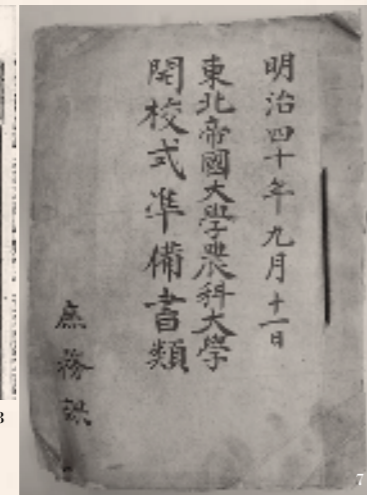 明治四十年九月十一日
東北帝國大學農科大學
開校式準備書類
庶務課
3
7